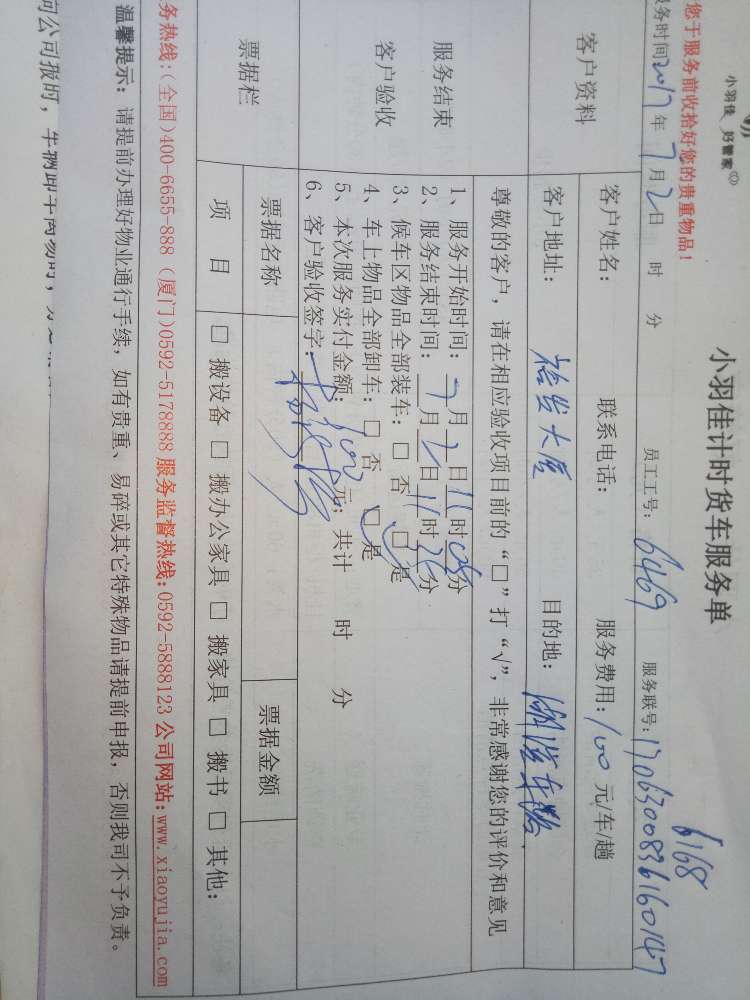 小羽佳 好管家
小羽佳计时货车服务单
您于服务前收拾好您的贵重物品!
6168
务时间2017年7月2日 时 分 员工工号: 6469 服务联号: 1706300836160147
客户资料
客户姓名: 联系电话: 服务费用: 100 元/车/趟
客户地址: 裕发大厦 目的地:
服务结束
客户验收
尊敬的客户, 请在相应验收项目前的“□”打“√”, 非常感谢您的评价和意见
1、服务开始时间: 7月2日11时05分
2、服务结束时间: 7月2日11时26分
3、候车区物品全部装车: □ 否 □ 是
4、车上物品全部卸车: □ 否 □ 是
5、本次服务实付金额: 100 元; 共计 时 分
6、客户验收签字:
票据栏
票据名称 票据金额
项 目 □ 搬设备 □ 搬办公家具 □ 搬家具 □ 搬书 □ 其他:
务热线:(全国)400-6655-888 (厦门)0592-5178888 服务监督热线:0592-5888123 公司网站:www.xiaoyujia.com
温馨提示: 请提前办理好物业通行手续, 如有贵重、易碎或其它特殊物品请提前申报, 否则我司不予负责。
向公司报时,